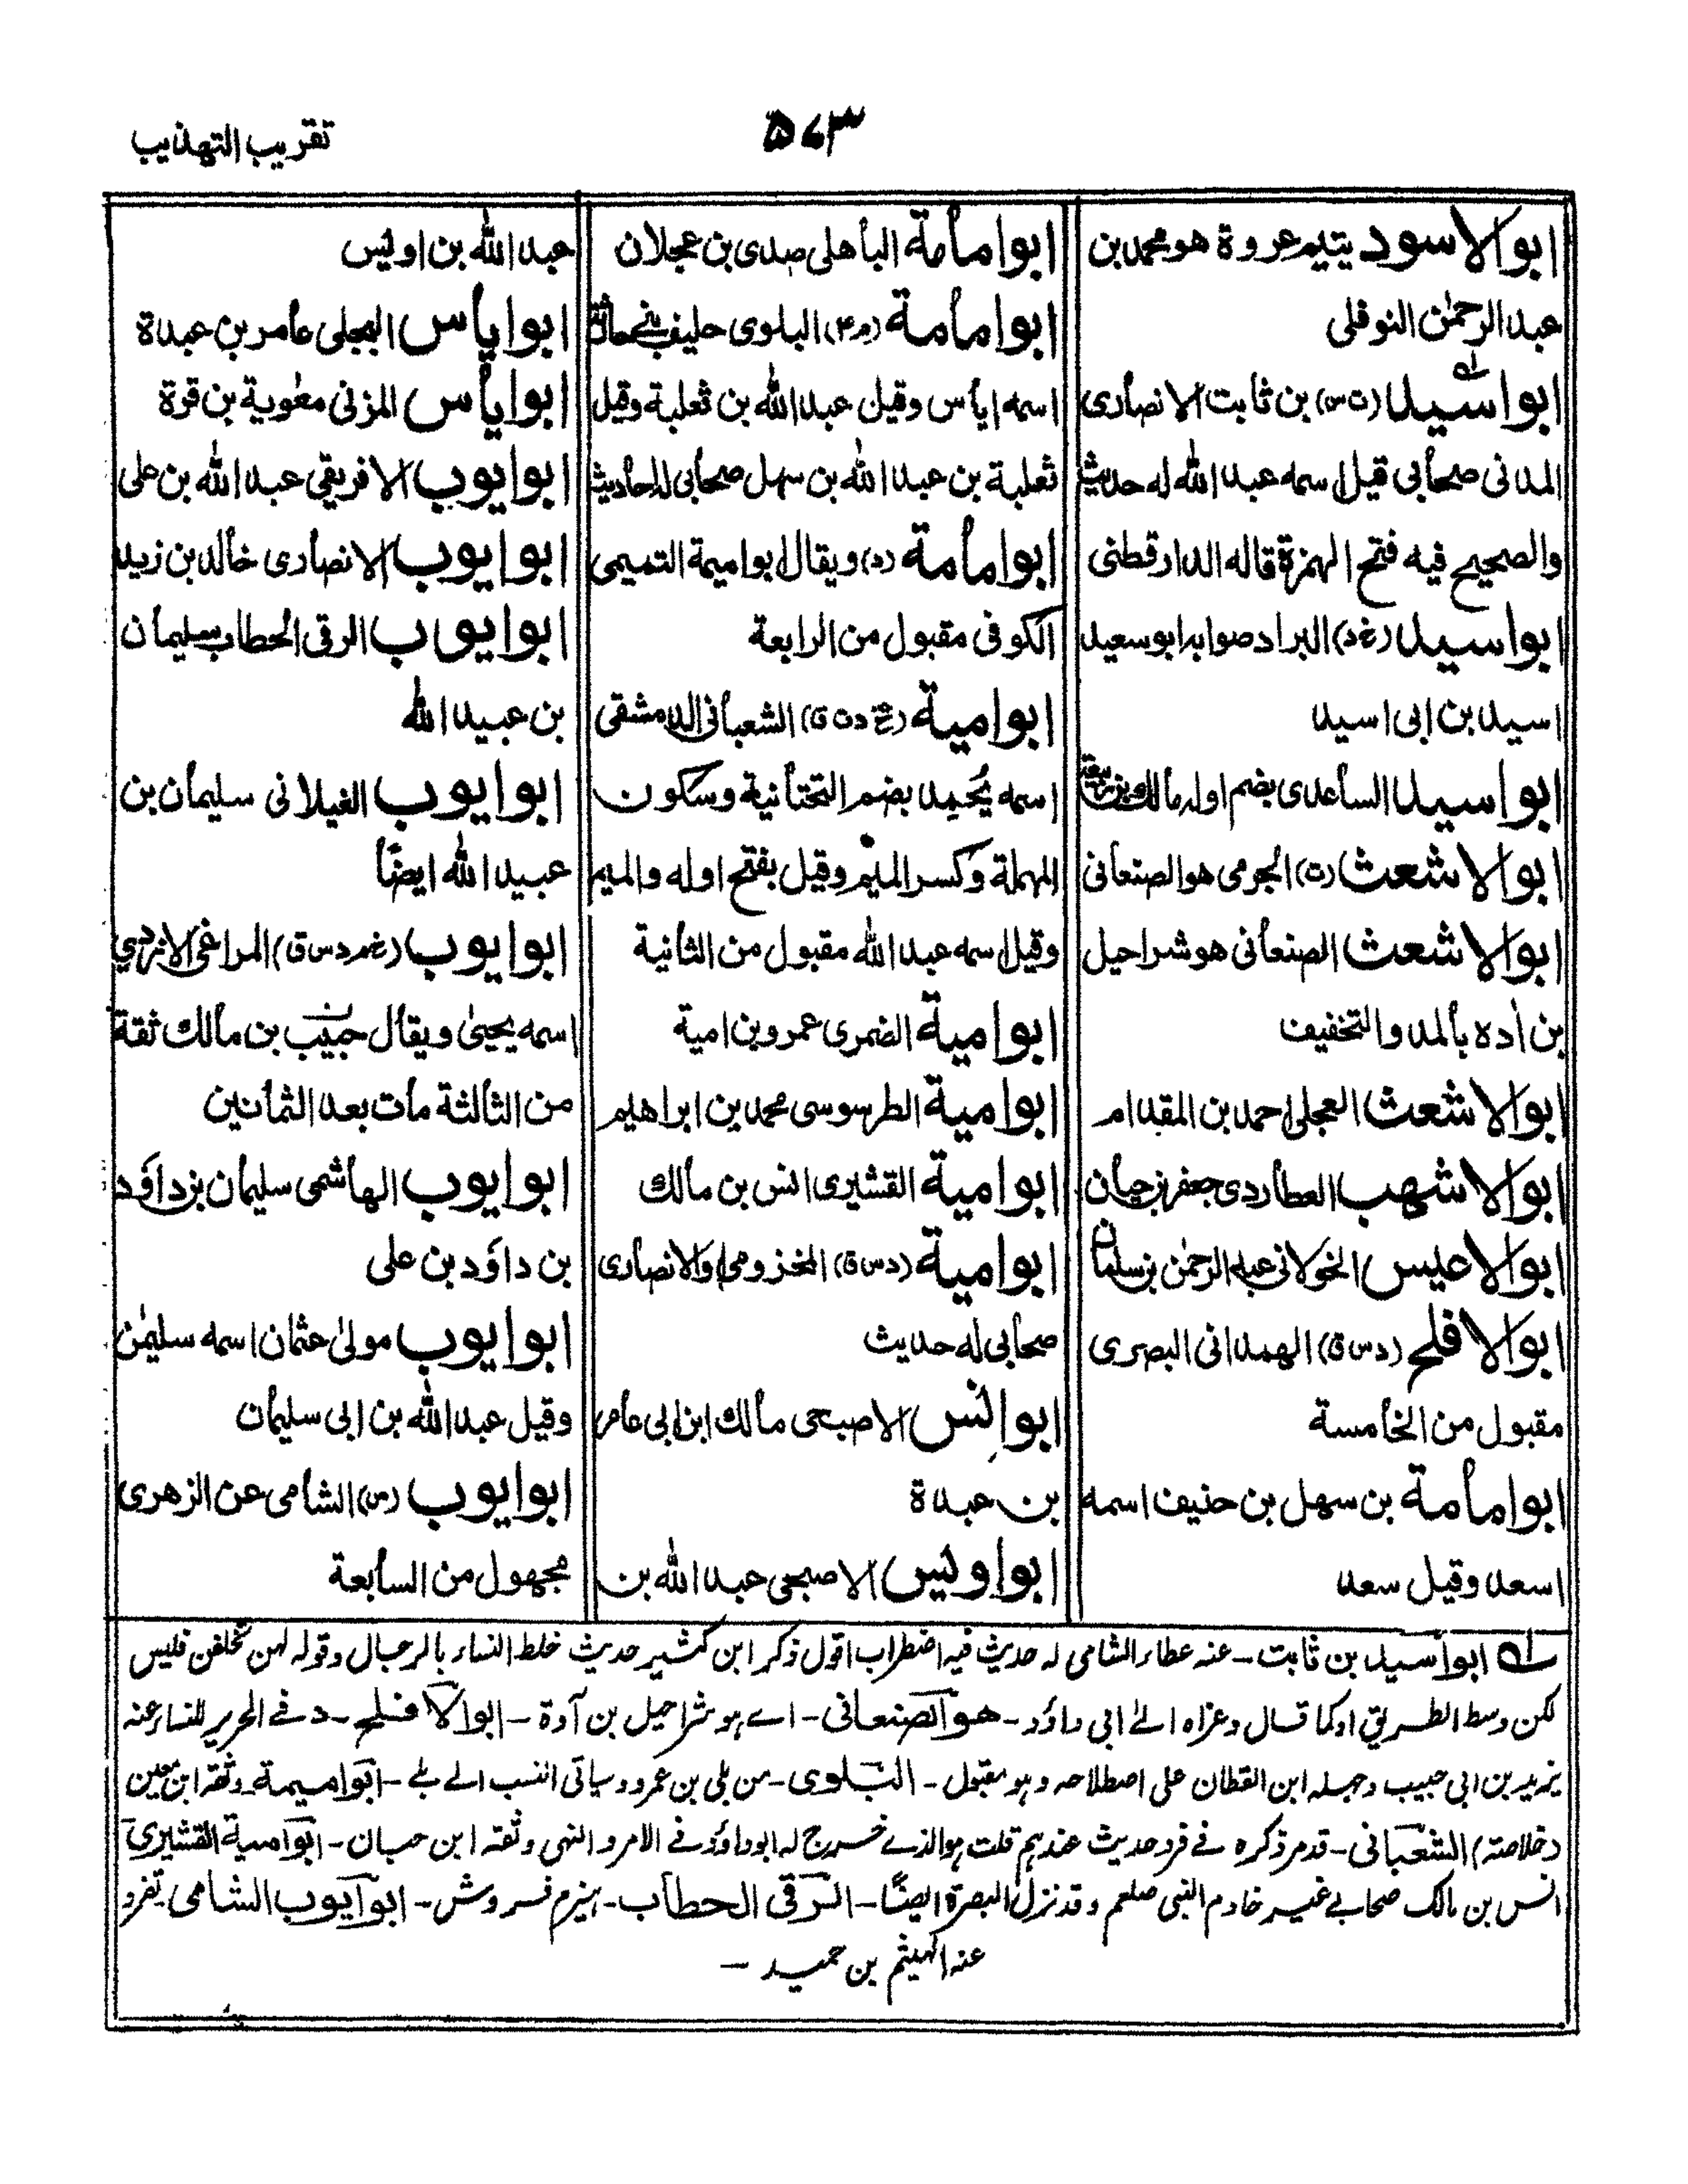 تقريب التهذيب
۵۷۳
ابو الاسود يتيم عروة هو محمد بن
عبد الرحمٰن النوفلى
ابو اسيد (ت س) بن ثابت الانصارى
المدنى صحابى قيل اسمه عبد الله له حديث
والصحيح فيه فتح الهمزة قاله الدارقطنى
ابو اسيد (بخ د) البراد صوابه ابو سعيد
اسيد بن ابى اسيد
ابو اسيد الساعدى بضم اوله مالك بن ربيعة
ابو الاشعث (ت) الجرمى هو الصنعانى
ابو الاشعث الصنعانى هو شراحيل
بن اٰده بالمد والتخفيف
ابو الاشعث العجلى احمد بن المقدام
ابو الاشهب العطاردى جعفر بن حيان
ابو الاعيس الخولانى عبد الرحمٰن بن سلمان
ابو الافلح (د س ق) الهمدانى البصرى
مقبول من الخامسة
ابو امامة بن سهل بن حنيف اسمه
اسعد وقيل سعد
ابو امامة الباهلى صدى بن عجلان
ابو امامة (م ۴) البلوى حليف بنى حارثة
اسمه اياس وقيل عبد الله بن ثعلبة وقيل
ثعلبة بن عبد الله بن سهل صحابى له احاديث
ابو امامة (د) ويقال ابو اميمة التميمى
الكوفى مقبول من الرابعة
ابو امية (عخ د ت ق) الشعبانى الدمشقى
اسمه يُحمِد بضم التحتانية وسكون
المهملة وكسر الميم وقيل بفتح اوله والميم
وقيل اسمه عبد الله مقبول من الثانية
ابو امية الضمرى عمرو بن امية
ابو امية الطرسوسى محمد بن ابراهيم
ابو امية القشيرى انس بن مالك
ابو امية (د س ق) المخزومى او الانصارى
صحابى له حديث
ابو انس الاصبحى مالك ابن ابى عامر
بن عبدة
ابو اويس الاصبحى عبد الله بن
عبد الله بن اويس
ابو اياس البجلى عامر بن عبدة
ابو اياس المزنى معٰوية بن قرة
ابو ايوب الافريقى عبد الله بن على
ابو ايوب الانصارى خالد بن زيد
ابو ايوب الرقى الحطاب سليمان
بن عبيد الله
ابو ايوب الغيلانى سليمان بن
عبيد الله ايضًا
ابو ايوب (خ م د س ق) المراغى الازدي
اسمه يحيىٰ ويقال حبيب بن مالك ثقة
من الثالثة مات بعد الثمانين
ابو ايوب الهاشمى سليمان بن داؤد
بن داؤد بن على
ابو ايوب مولىٰ عثمان اسمه سليمٰن
وقيل عبد الله بن ابى سليمان
ابو ايوب (س) الشامى عن الزهرى
مجهول من السابعة
ــله ابو اسيد بن ثابت - عنه عطاء الشامى له حديث فيه اضطراب اقول ذكر ابن كثير حديث خلط النساء بالرجال وقوله لهن تخلفن فليس
لكن وسط الطريق او كما قال وعزاه الے ابى داؤد - هو الصنعانى - اے ہو شراحيل بن آدة - ابو الافلح - د فے الحرير للنساء عنه
يزيد بن ابى حبيب وجهله ابن القطان على اصطلاحه وہو مقبول - البلوى - من بلى بن عمرو وسياتى النسب الے بلے - ابو اميمة وثقه ابن معين
(خلاصة) الشعبانى - قد مر ذكره فے فرد حديث عندہم قلت ہو الذے خرج له ابو داؤد فے الامر والنهى وثقه ابن حبان - ابو امية القشيرى
انس بن مالك صحابے غير خادم النبى صلعم وقد نزل البصرة ايضًا - الرقى الحطاب - ہيزم فروش - ابو ايوب الشامى تفرد
عنه الهيثم بن حميد -